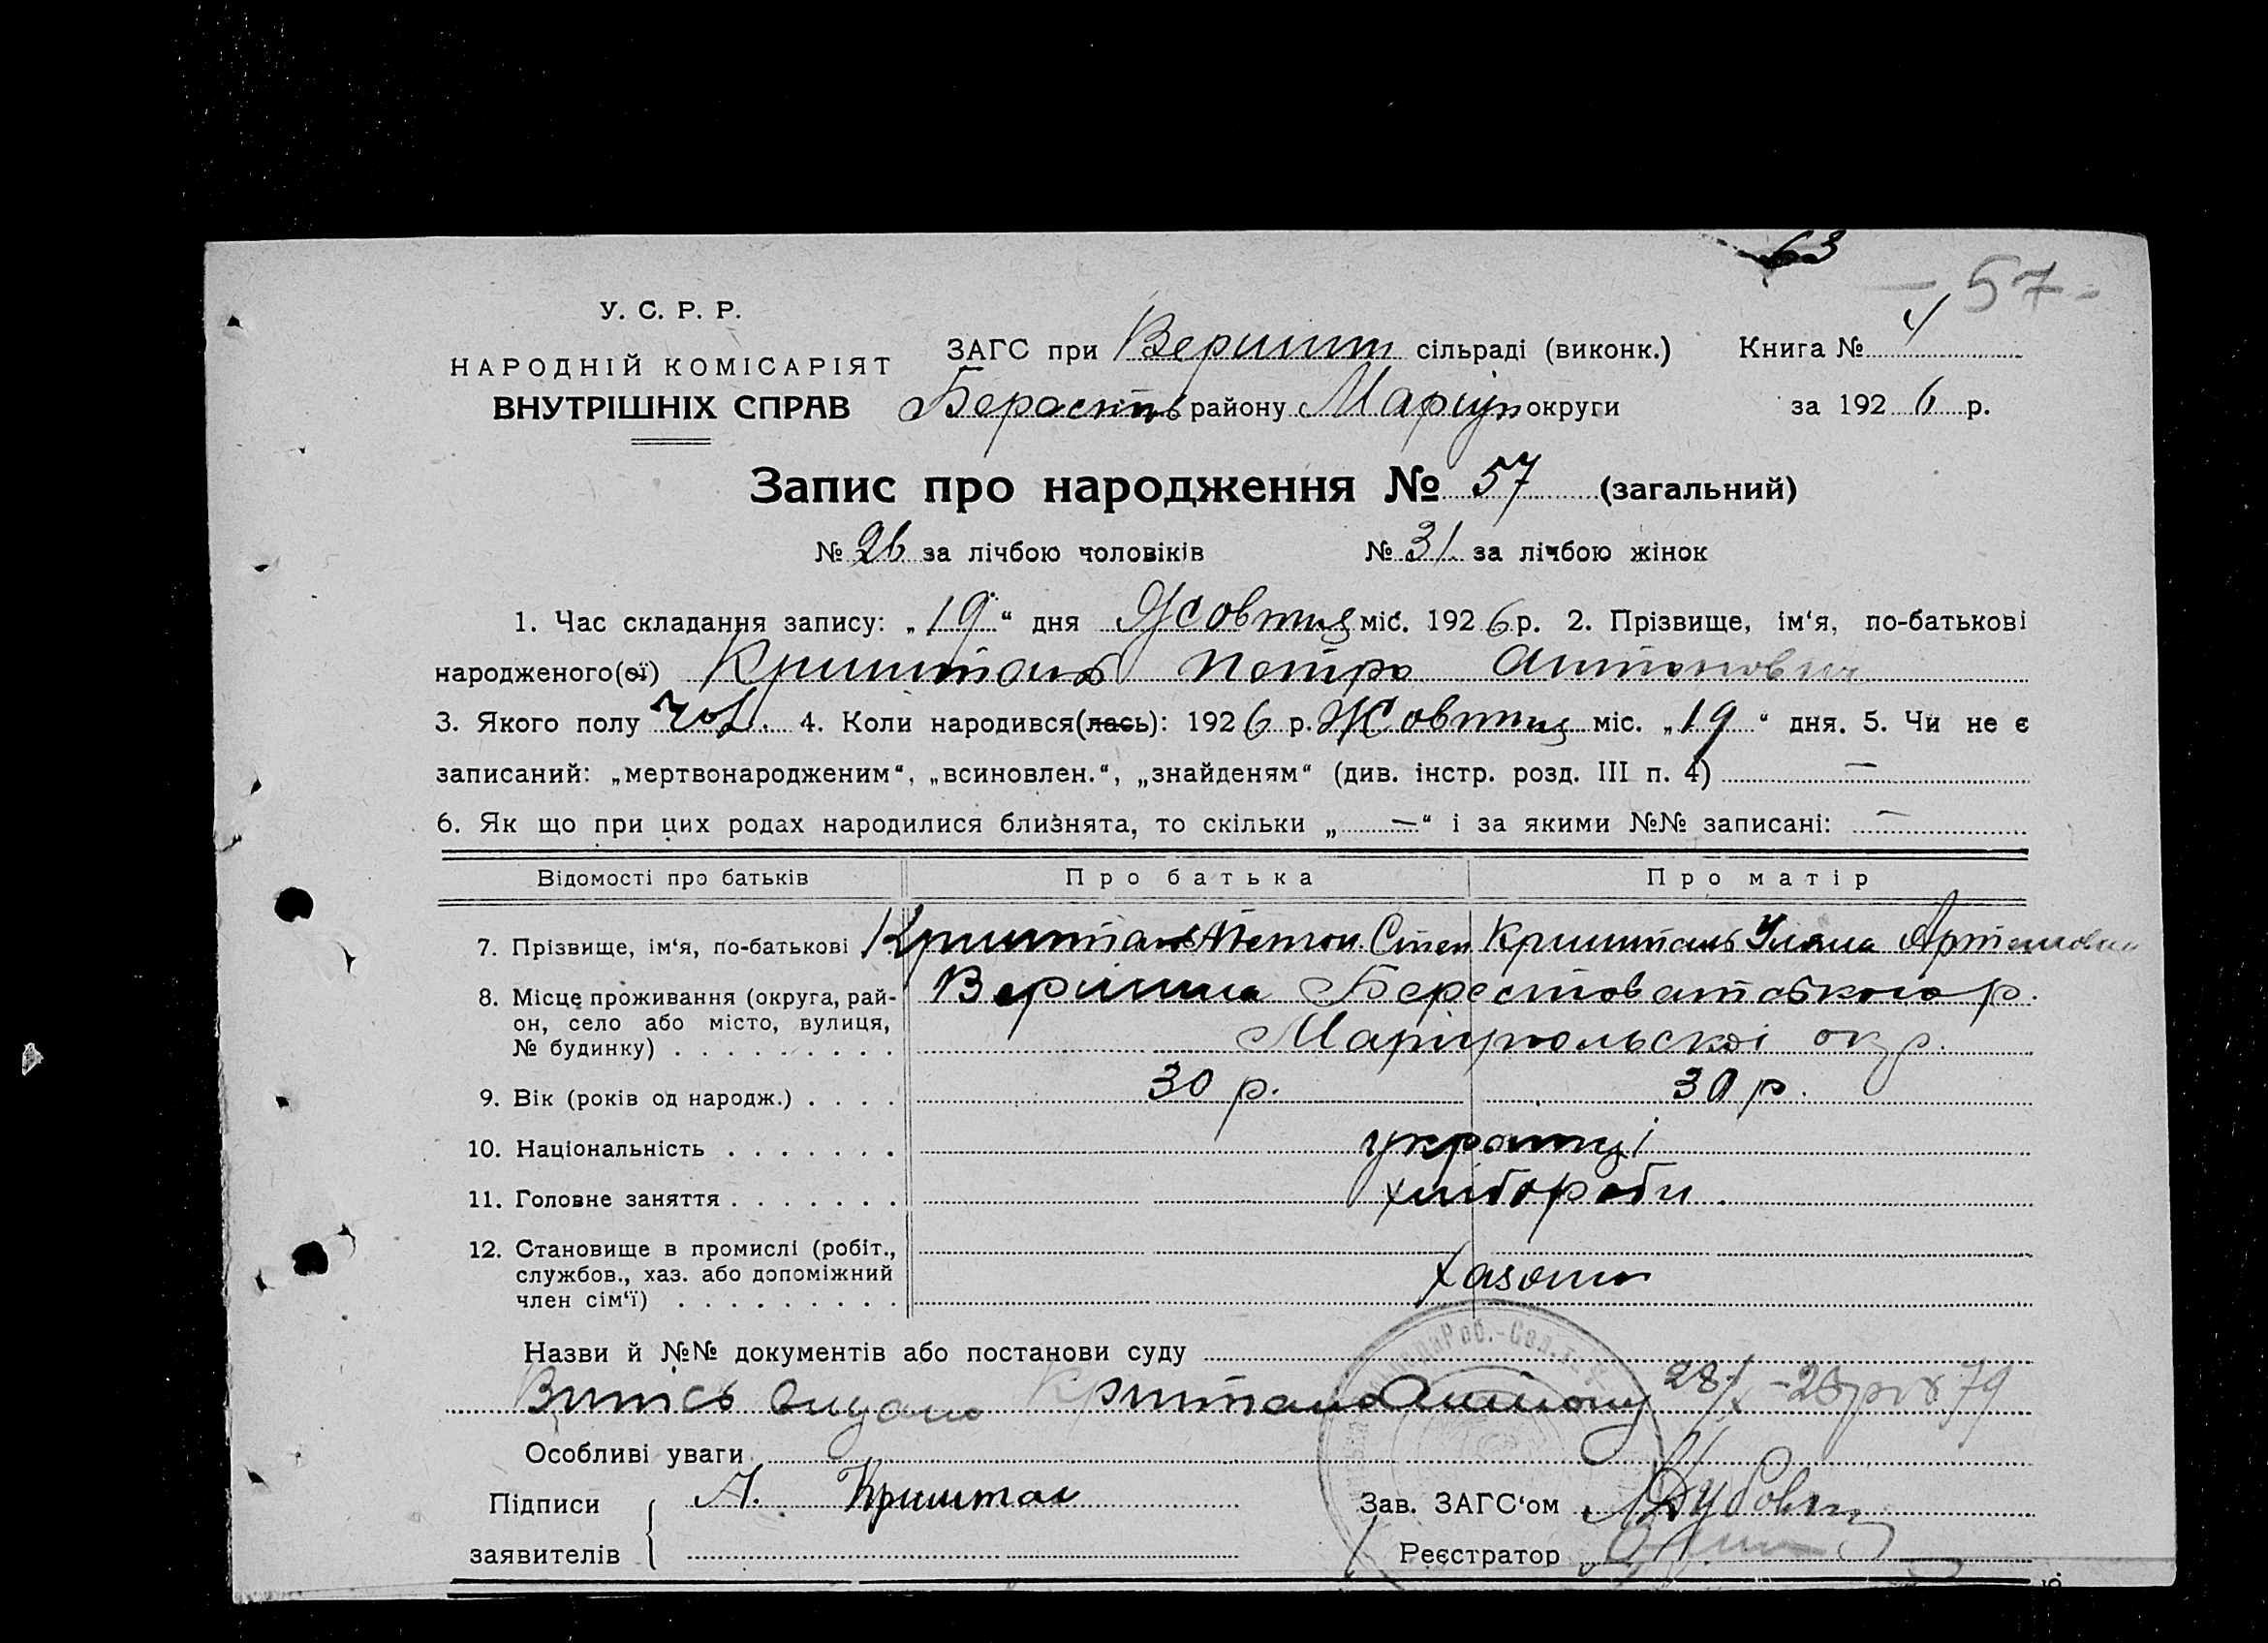 63
- 57 -
У. С. Р. Р.
НАРОДНІЙ КОМІСАРІЯТ
ВНУТРІШНІХ СПРАВ
ЗАГС при сільраді (виконк.) Книга № 4
району Маріуп округи за 1926 р.
Запис про народження № 57 (загальний)
№ 26 за лічбою чоловіків № 31 за лічбою жінок
1. Час складання запису: „19“ дня Жовтня міс. 1926 р. 2. Прізвище, ім‘я, по-батькові
народженого(ої) Кришталь Петро Антонович
3. Якого полу чол. 4. Коли народився(лась): 1926 р. Жовтня міс. „19“ дня. 5. Чи не є
записаний: „мертвонародженим“, „всиновлен.“, „знайденям“ (див. інстр. розд. III п. 4) —
6. Як що при цих родах народилися близнята, то скільки „—“ і за якими №№ записані: —
Відомості про батьків Про батька Про матір
7. Прізвище, ім‘я, по-батькові Кришталь Антон Степ Кришталь Уляна Артемовна
8. Місце проживання (округа, рай-
он, село або місто, вулиця,
№ будинку)
Вершина р.
Маріупольскої окр.
9. Вік (років од народж.) 30 р. 30 р.
10. Національність українці
11. Головне заняття хлібороби.
12. Становище в промислі (робіт.,
службов., хаз. або допоміжний
член сім‘ї)
Назви й №№ документів або постанови суду
Витісь видано Кришталь Антону
Особливі уваги
Підписи
заявителів
А. Кришталь
Зав. ЗАГС‘ом
Реєстратор